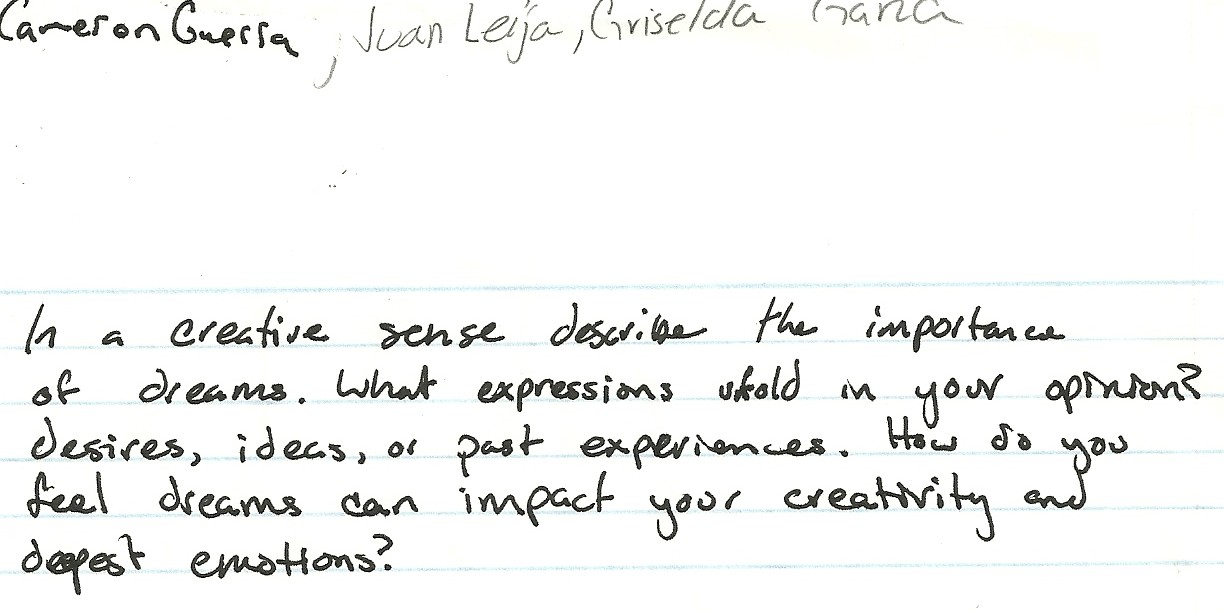 Cameron Guerra, Juan Leija, Griselda Garza
In a creative sense describe the importance
of dreams. What expressions ufold in your opinion?
desires, ideas, or past experiences. How do you
feel dreams can impact your creativity and
deepest emotions?